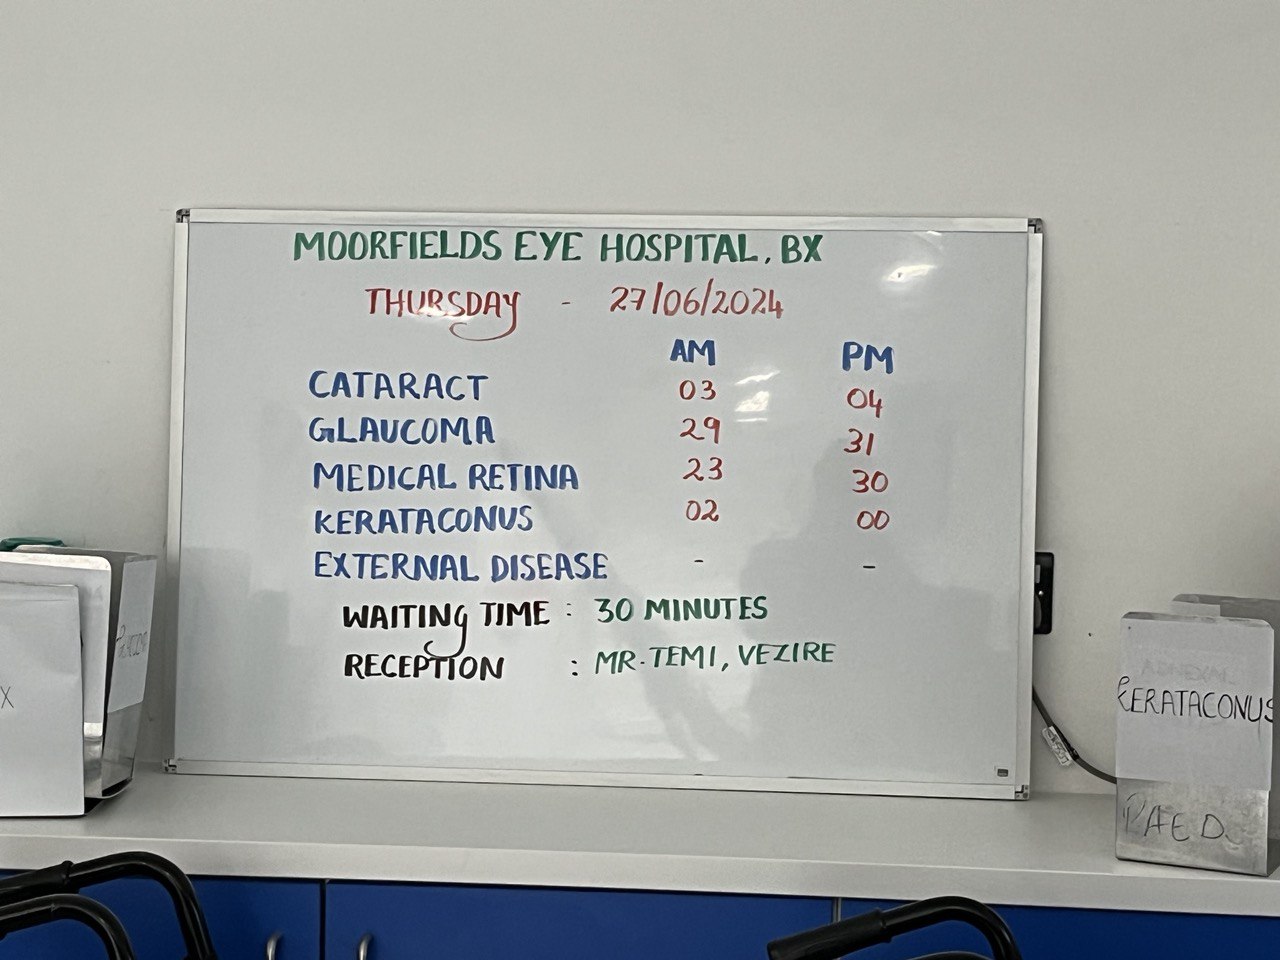 MOORFIELDS EYE HOSPITAL, BX
THURSDAY - 27/06/2024
AM PM
CATARACT 03 04
GLAUCOMA 29 31
MEDICAL RETINA 23 30
KERATACONUS 02 00
EXTERNAL DISEASE - -
WAITING TIME : 30 MINUTES
RECEPTION : MR. TEMI, VEZIRE
X
KERATACONUS
PAED